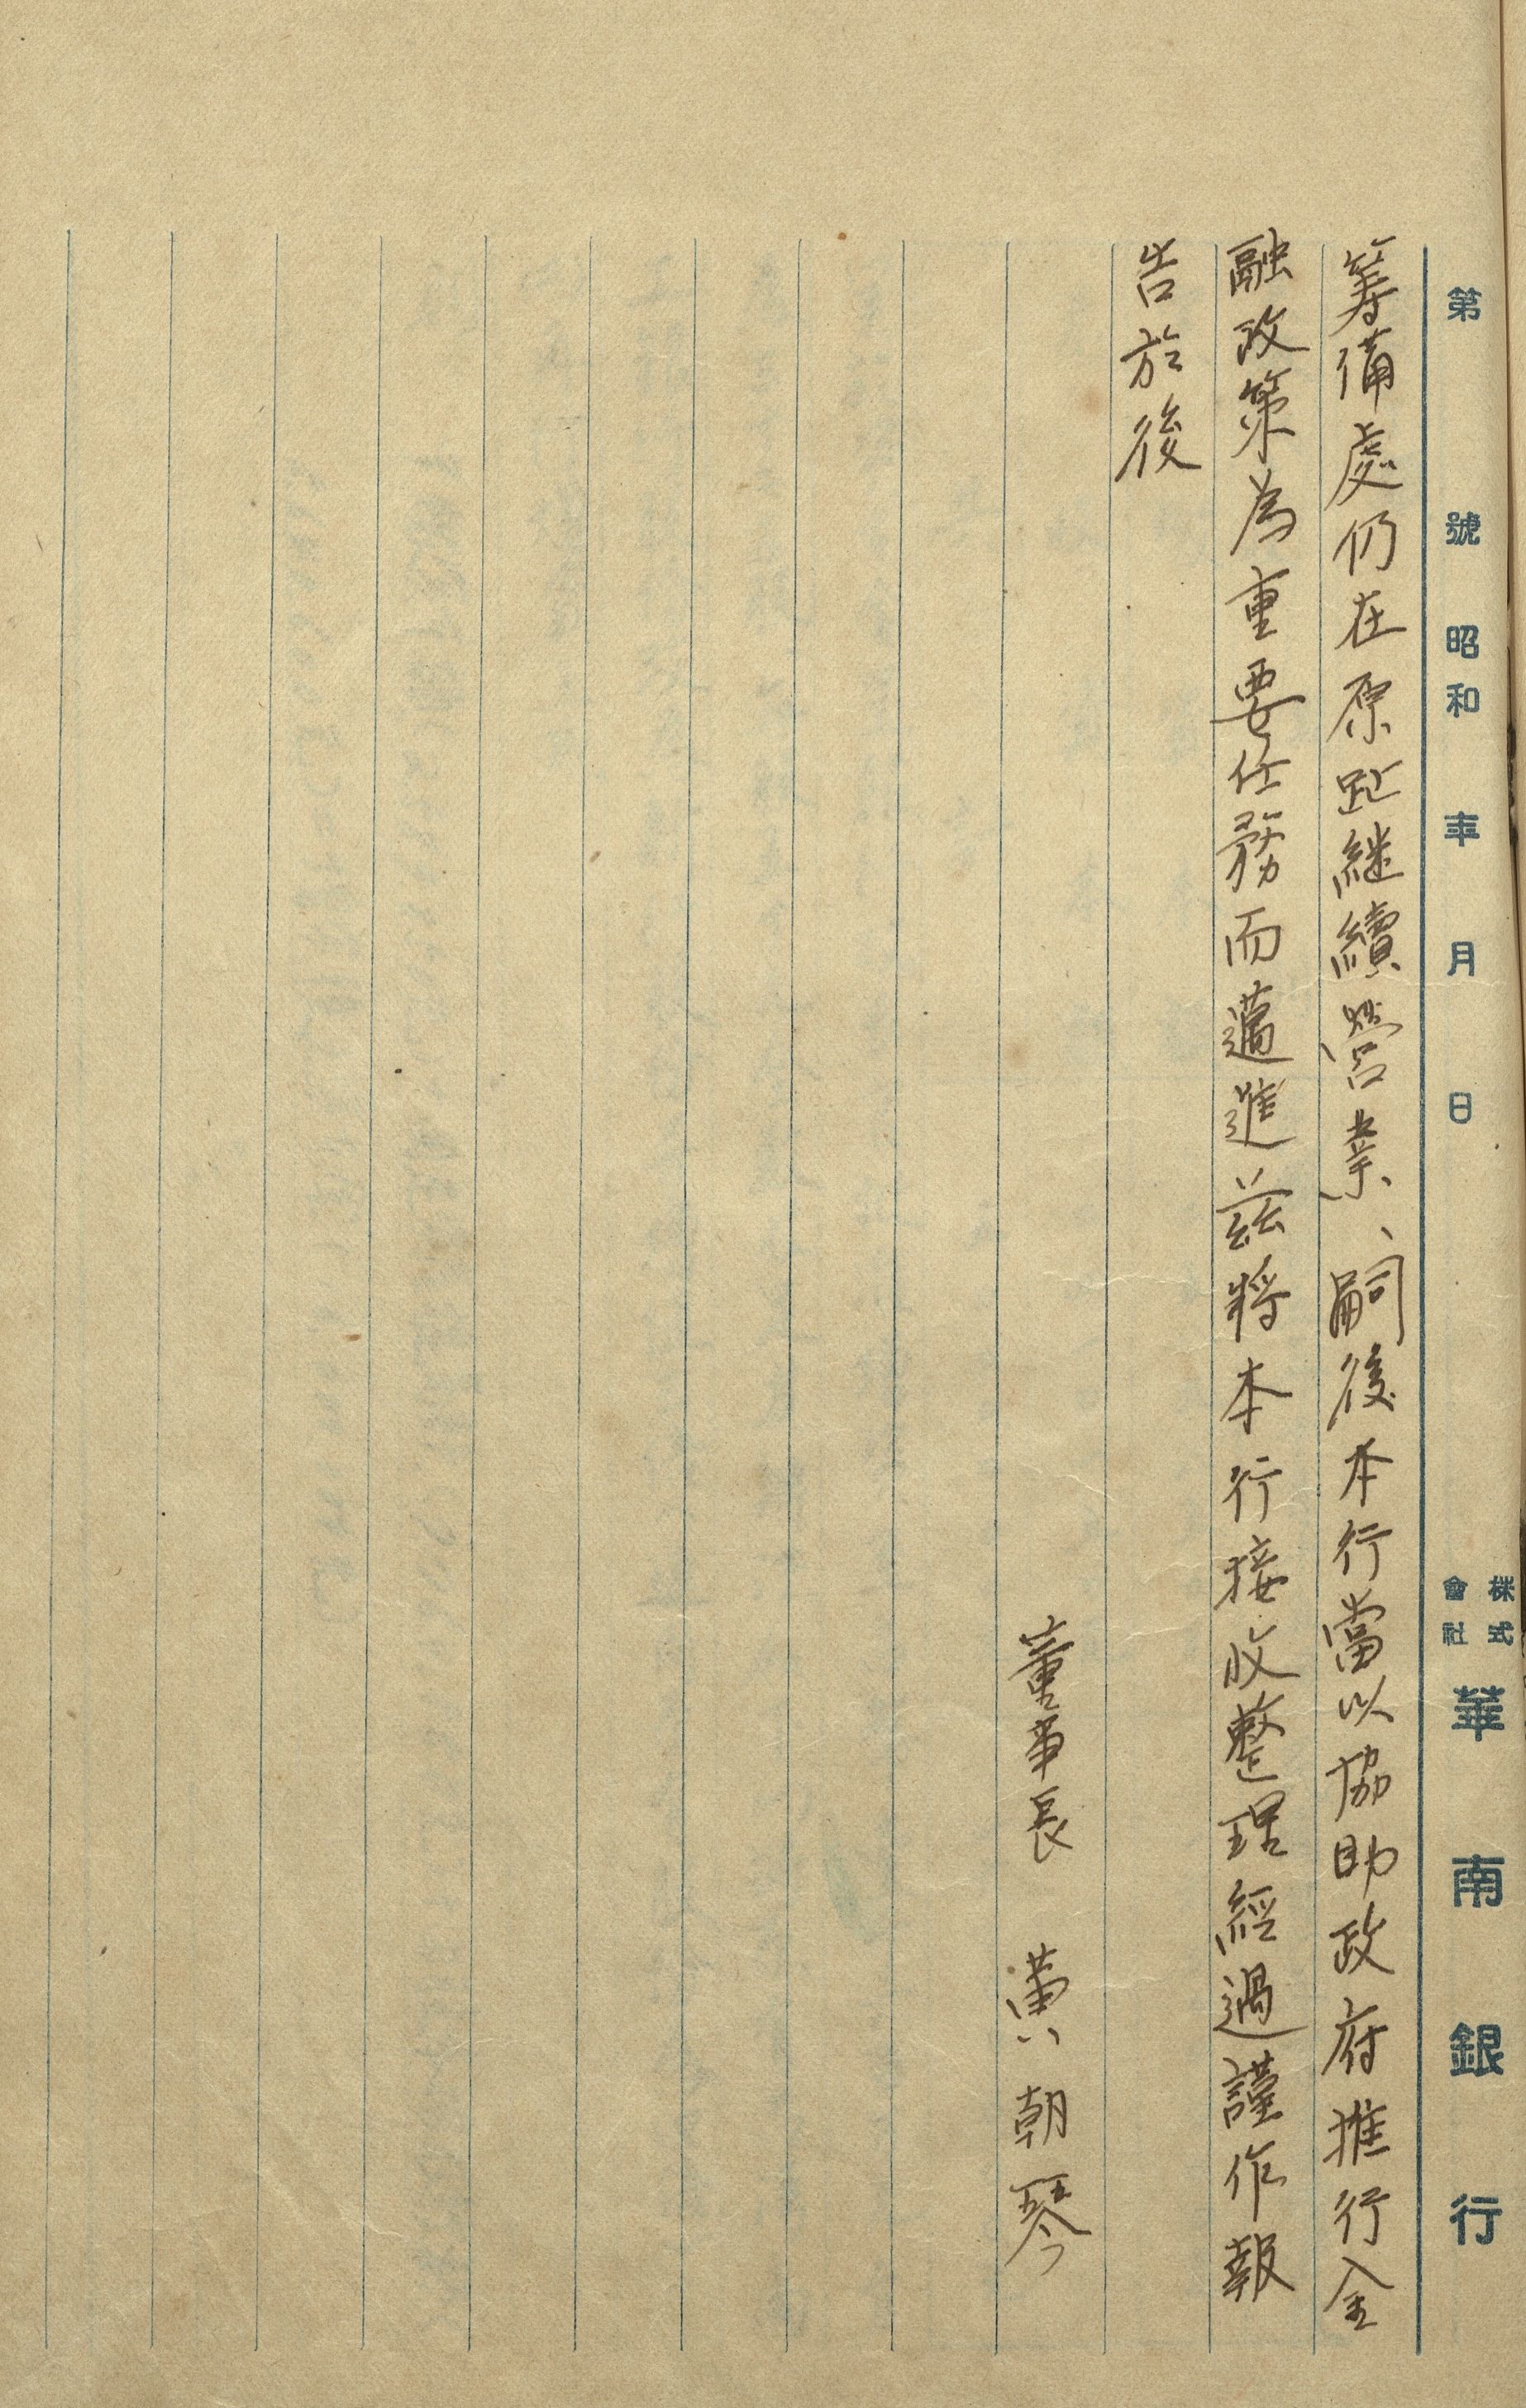 第 號 昭和 年 月 日 株式會社 華南銀行
籌備處仍在原趾継續營業、嗣後本行當以協助政府推行金
融政策為重要任務而邁進茲將本行接收整理經過謹作報
告於後
董事長 黄朝琴